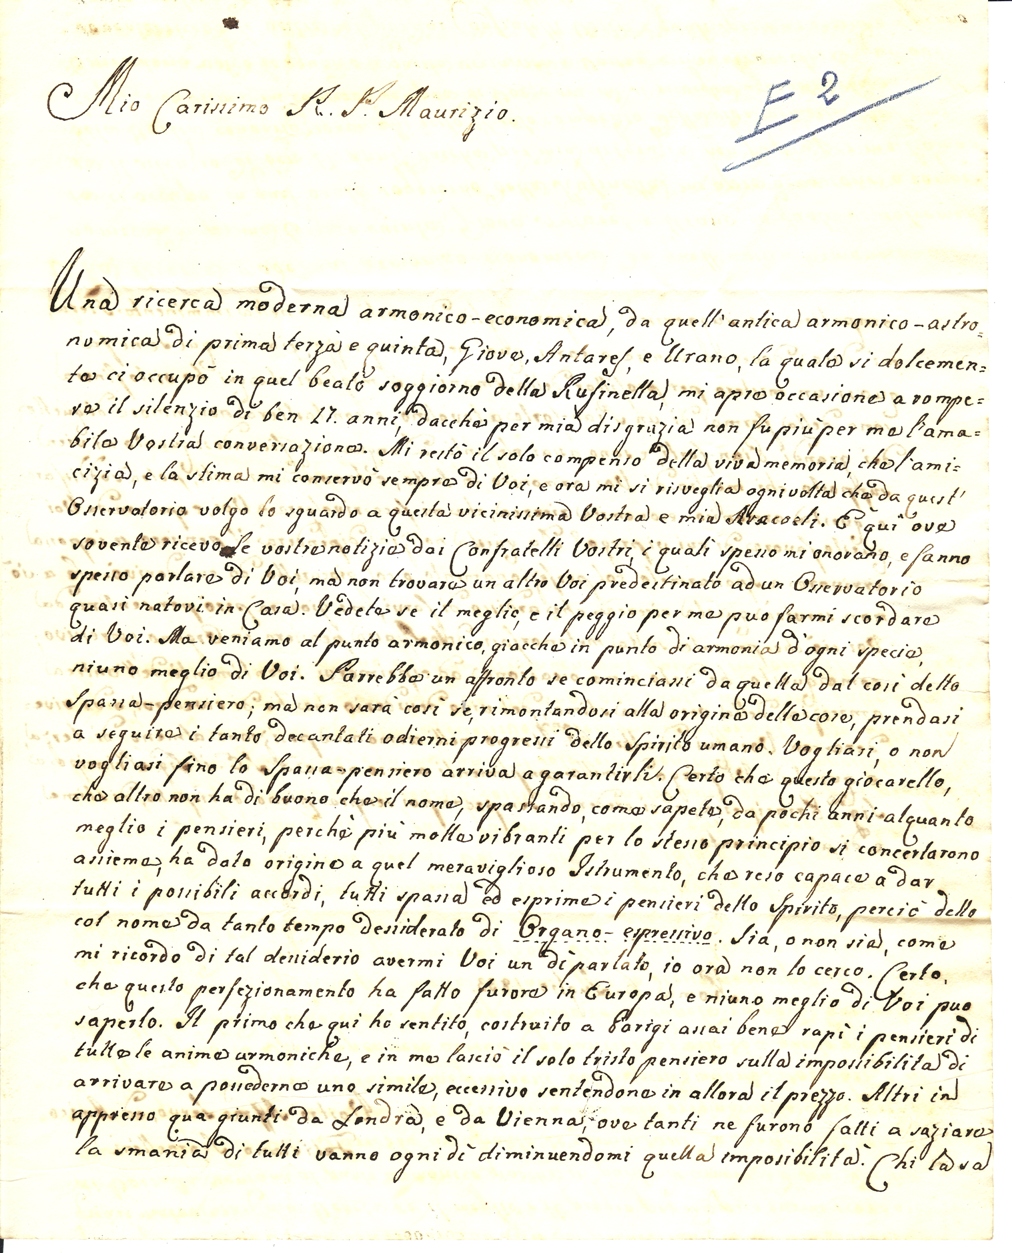 E 2
Mio Carissimo R. P. Maurizio.
Una ricerca moderna armonico-economica, da quell'antica armonico-astro=
nomica di prima terza e quinta, Giove, Antares, e Urano, la quale si dolcemen=
te ci occupò in quel beato soggiorno della Rufinella, mi apre occasione a rompe=
re il silenzio di ben 17. anni, dacchè per mia disgrazia non fu più per me l'ama=
bile Vostra conversazione. Mi restò il solo compenso della viva memoria, che l'ami=
cizia, e la stima mi conservò sempre di Voi, e ora mi si risveglia ogni volta che da quest'
Osservatorio volgo lo sguardo a questa vicinissima Vostra e mia Aracoeli. E qui ove
sovente ricevo le vostre notizie dai Confratelli Vostri, i quali spesso mi onorano, e fanno
spesso parlare di Voi, ma non trovare un altro Voi predestinato ad un Osservatorio
quasi natovi in Casa. Vedete se il meglio, e il peggio per me puo farmi scordare
di Voi. Ma veniamo al punto armonico, giacche in punto di armonia d'ogni specie,
niuno meglio di Voi. Parrebbe un affronto se cominciassi da quella dal così detto
Spassa-pensiero; ma non sarà così se, rimontandosi alla origine delle cose, prendasi
a seguire i tanto decantati odierni progressi dello Spirito umano. Vogliasi, o non
vogliasi fino lo Spassa-pensiero arriva a garantirli. Certo che questo giocarello,
che altro non ha di buono che il nome, spassando, come sapete, da pochi anni alquanto
meglio i pensieri, perchè più molle vibranti per lo stesso principio si concertarono
assieme, ha dato origine a quel meraviglioso Istrumento, che reso capace a dar
tutti i possibili accordi, tutti spassa ed esprime i pensieri dello Spirito, perciò detto
col nome da tanto tempo desiderato di Organo-espressivo. Sia, o non sia, come
mi ricordo di tal desiderio avermi Voi un dì parlato, io ora non lo cerco. Certo,
che questo perfezionamento ha fatto furore in Europa, e niuno meglio di Voi puo
saperlo. Il primo che qui ho sentito, costruito a Parigi assai bene rapì i pensieri di
tutte le anime armoniche, e in me lasciò il solo tristo pensiero sulla impossibilità di
arrivare a possederne uno simile, eccessivo sentendone in allora il prezzo. Altri in
appresso qua giunti da Londra, e da Vienna, ove tanti ne furono fatti a saziare
la smania di tutti vanno ogni dì diminuendomi quella imposibilità. Chi la sa